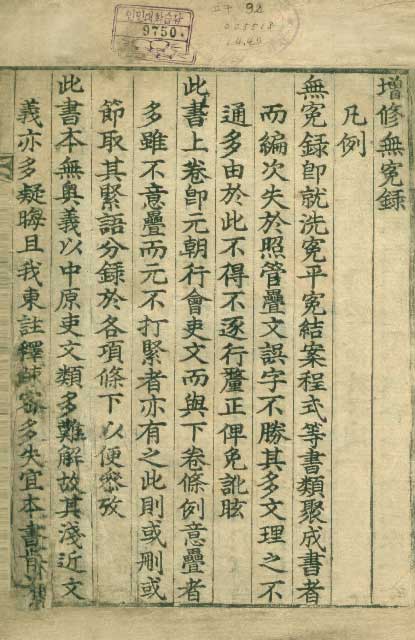 인민대학습당
9750
增修無冤錄
凡例
無冤錄卽就洗冤平冤結案程式等書類聚成書者
而編次失於照管疊文誤字不勝其多文理之不
通多由於此不得不逐行釐正俾免訛眩
此書上卷卽元朝行會吏文而與下卷條例意疊者
多雖不意疊而元不打緊者亦有之此則或刪或
節取其緊語分錄於各項條下以便叅攷
此書本無奧義以中原吏文類多難解故其淺近文
義亦多疑晦且我東註釋踈密多失宜本書肯